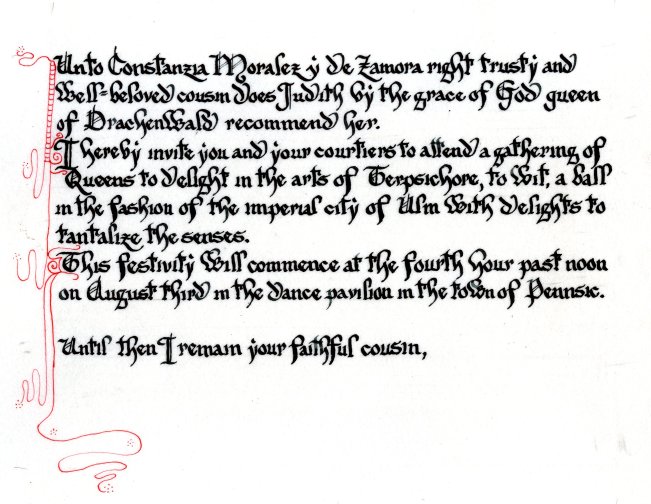 Unto Constanzia Moralez y de Zamora right trusty and
well-beloved cousin does Judith by the grace of God queen
of Drachenwald recommend her.
I hereby invite you and your courtiers to attend a gathering of
Queens to delight in the arts of Terpsichore, to wit, a ball
in the fashion of the imperial city of Ulm with delights to
tantalize the senses.
This festivity will commence at the fourth hour past noon
on August third in the dance pavilion in the town of Pennsic.
Until then I remain your faithful cousin,